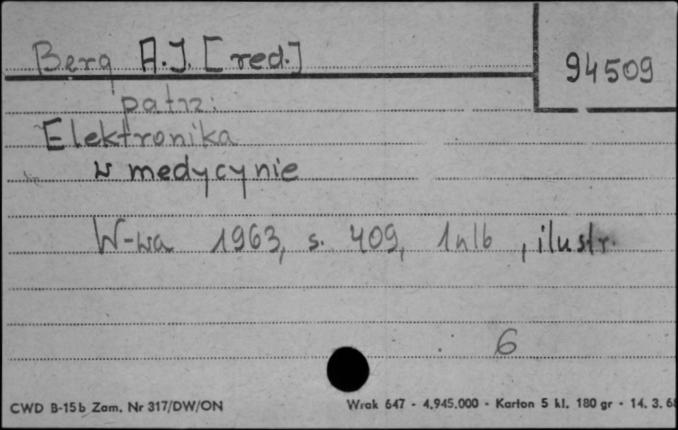 Berg A.J. [red.]
94509
patrz:
Elektronika
w medycynie
W-wa 1963, s. 409, 1nlb, ilustr.
6
CWD B-15b Zam. Nr 317/DW/ON
Wrak 647 - 4.945.000 - Karton 5 kl. 180 gr - 14. 3. 68